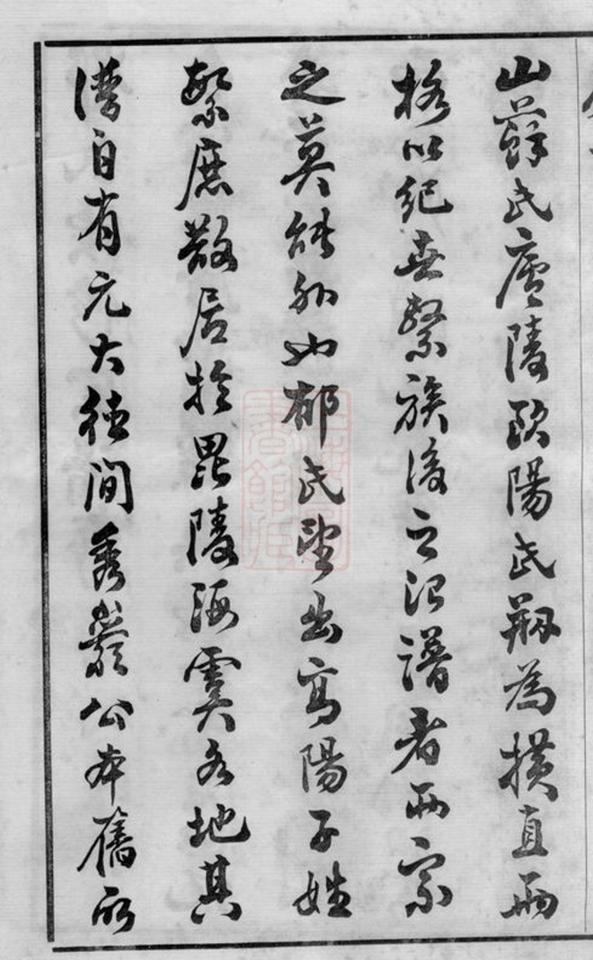 山蘇氏廬陵歐陽氏剏為橫直兩
格以紀世繫族後之治譜者兩宗
之莫能外也郁氏望出高陽子姓
繁庶散居於毘陵海虞各地其
譜自有元大德間秀巖公本舊所